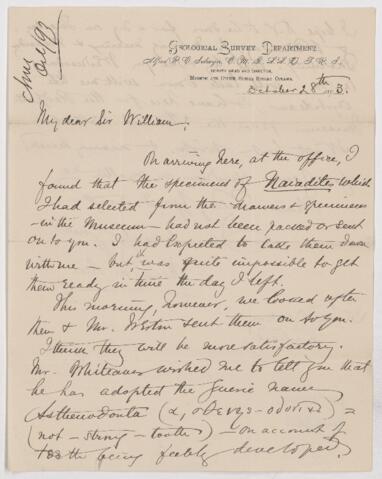 Oct/93
GEOLOGICAL SURVEY DEPARTMENT.
Alfred R. C. Selwyn, C.M.G., LL.D., F.R.S.,
DEPUTY HEAD AND DIRECTOR,
Museum and Office, Sussex Street, Ottawa.
October 28th 93.
My dear Sir William,
On arriving here, at the office, I
found that the specimens of Naiadites which
I had selected from the drawers & specimens
in the Museum - had not been packed or sent
on to you. I had expected to take them down
with me - but it was quite impossible to get
them ready in time the day I left.
This morning, however, we looked after
them & Mr. Weston sent them on to you.
I think they will be more satisfactory.
Mr. Whiteaves wished me to tell you that
he has adopted the generic name
Asthenodonta =
(not - strong - tooth) - on account of
teeth being feebly developed.